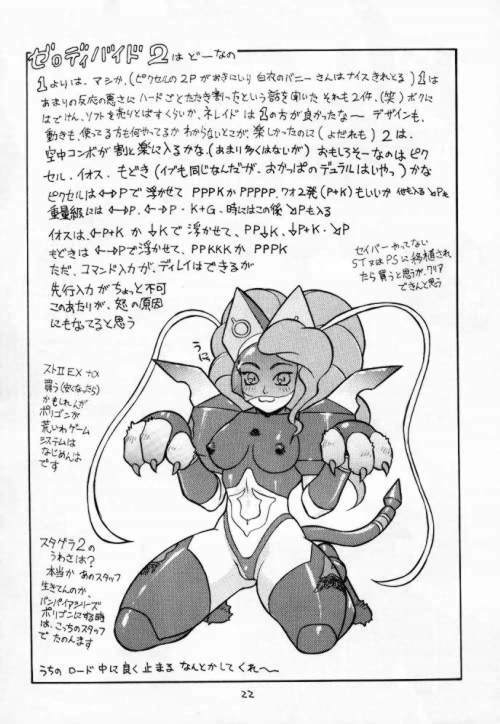 ゼロディバイド2はどーなの
1よりは、マシか、(ピクセルの2Pがおきにいり 白衣のバニーさんはナイスきれとる) 1は
あまりの反応の悪さにハードごとたたき割ったという話を聞いた それも2件、(笑) ボクに
はでけん、ソフトを売りとばすくらいか、ネレイドは1の方が良かったな〜 デザインも、
動きも、使ってる方も何やってるかわからないとこが、楽しかったのに(よだれも) 2は、
空中コンボが割と楽に入るかな、(あまり多くはないが) おもしろそーなのはピク
セル、イオス、もどき(イブも同じなんだが、おかっぱのデュラルはいやっ) かな
ピクセルは←→Pで浮かせて PPPKか PPPPP、ワオ2発(P+K)もいいか 他も入る↘Pも
重量級には←→P、←→P・K+G、時にはこの後↘Pも入る
イオスは、←P+Kか↓Kで浮かせて、PP↓K、↓P+K・↘P
もどきは←→Pで浮かせて、PPKKKか PPPK
ただ、コマンド入力が、ディレイはできるが
先行入力がちょっと不可
このあたりが、怒の原因
にもなってると思う
セイバーやってない
ST又はPSに移植され
たら買うと思うが、クリア
できんと思う
うにっ
ストⅡEX+α
買う(安くなったら)
かもしれんが
ポリゴンが
荒いわゲーム
システムは
なじめんは
です
スタグラ2の
うわさは?
本当か あのスタッフ
生きてんのか、
バンパイアシリーズ
ポリゴンにする時
は、こっちのスタッフ
でたのんます
うちの ロード 中に良く止まる なんとかしてくれ〜
22